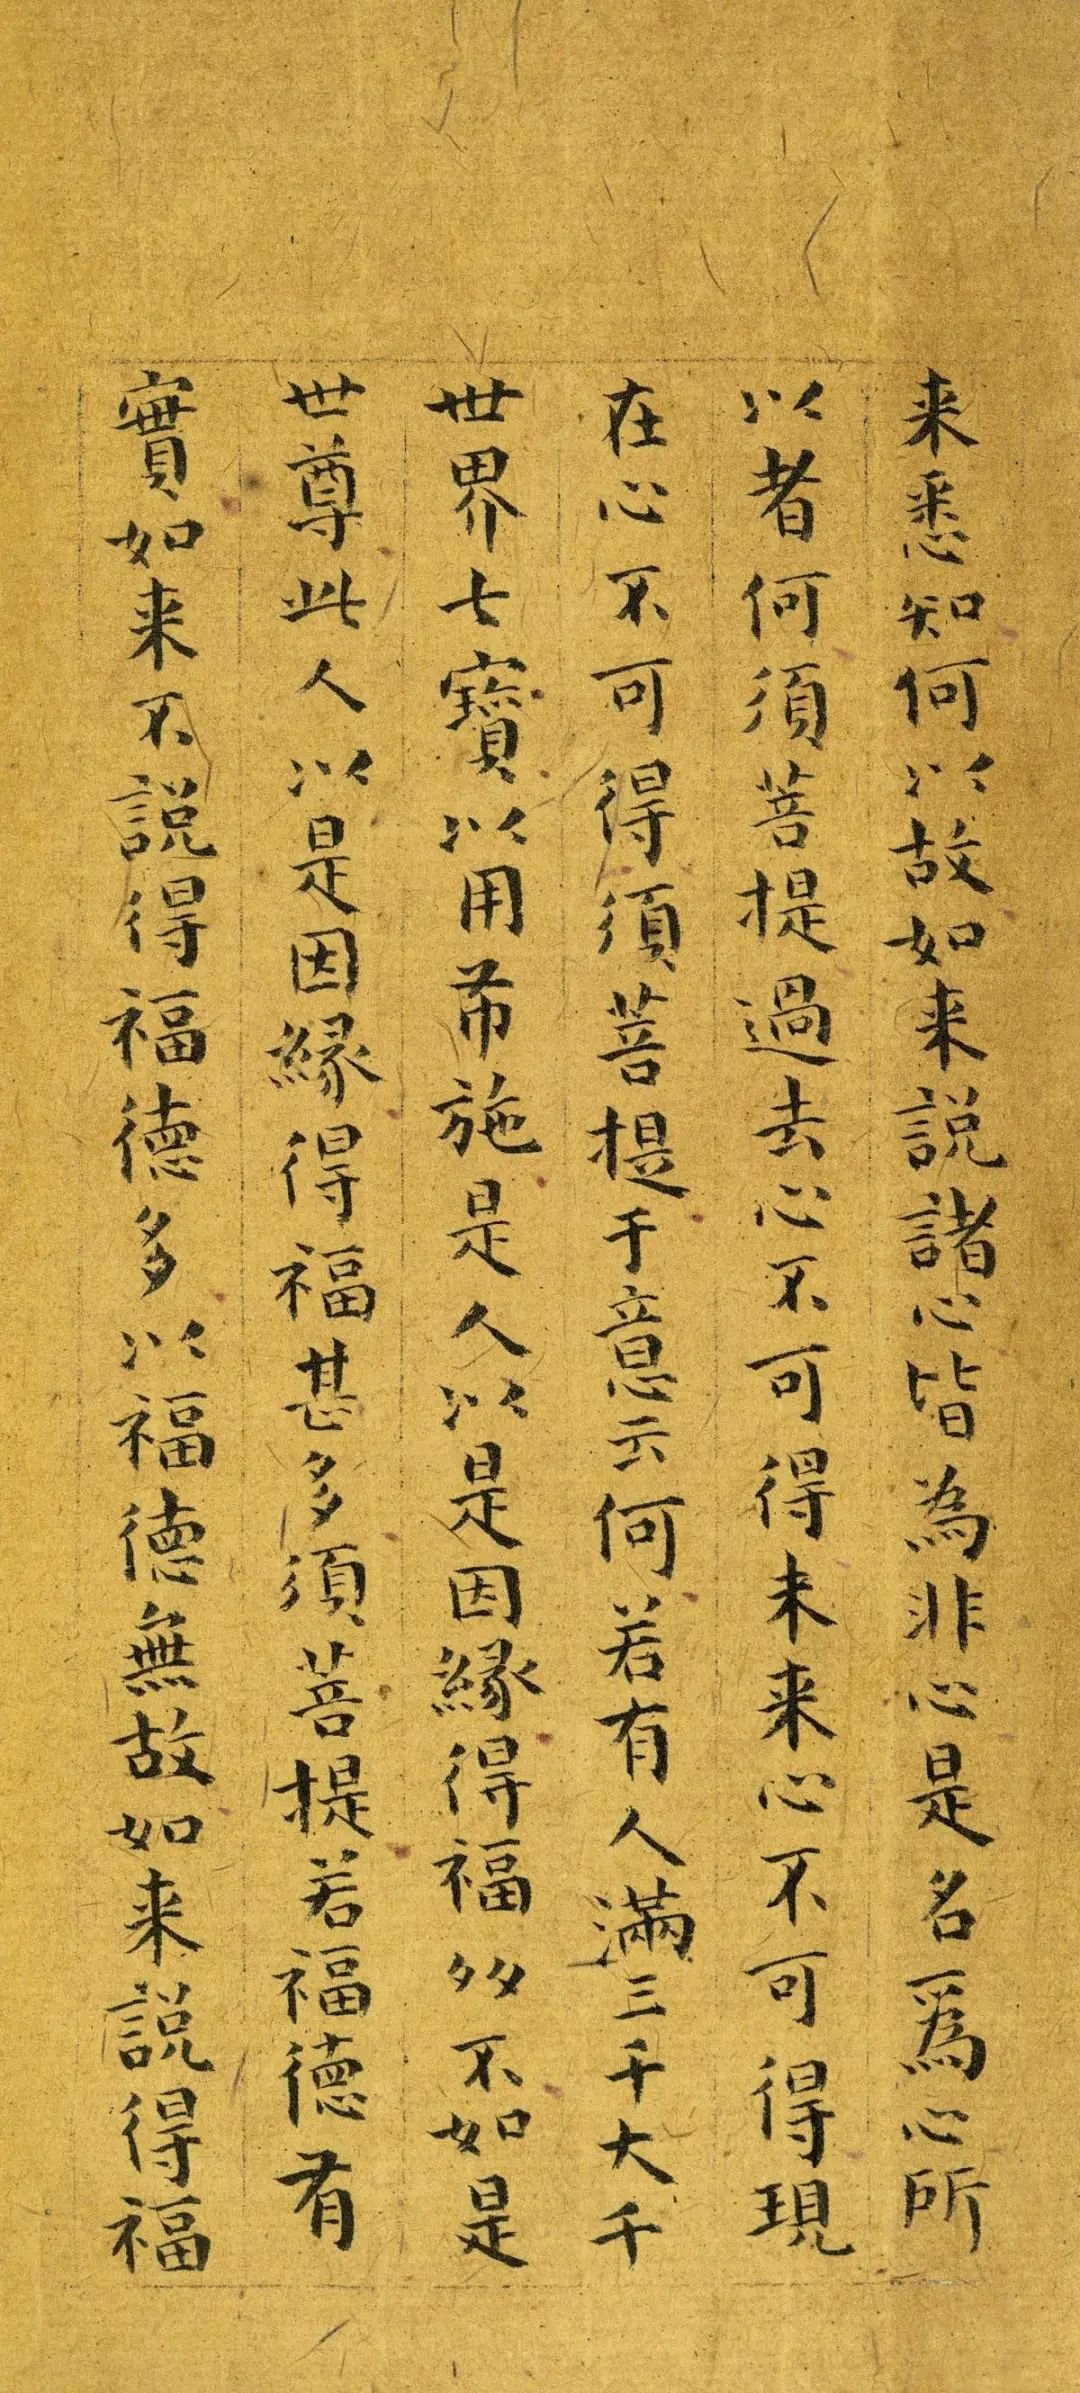 来悉知何以故如来說諸心皆為非心是名爲心所
以者何須菩提過去心不可得未来心不可得現
在心不可得須菩提于意云何若有人滿三千大千
世界七寶以用布施是人以是因縁得福多不如是
世尊此人以是因縁得福甚多須菩提若福德有
實如来不說得福德多以福德無故如来說得福